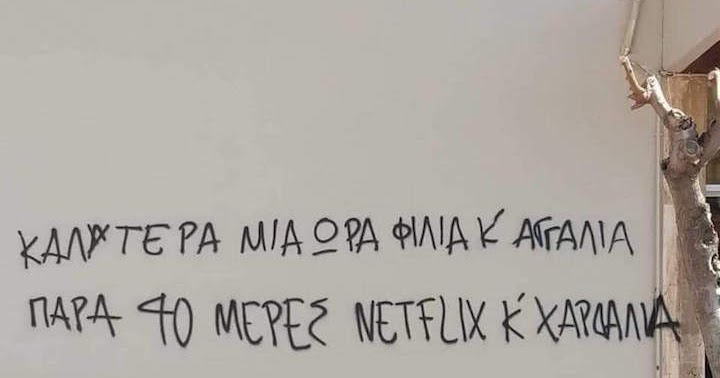 ΚΑΛΥΤΕΡΑ ΜΙΑ ΩΡΑ ΦΙΛΙΑ Κ' ΑΓΓΑΛΙΑ
ΠΑΡΑ 40 ΜΕΡΕΣ NETFLIX Κ' ΧΑΡΔΑΛΙΑ